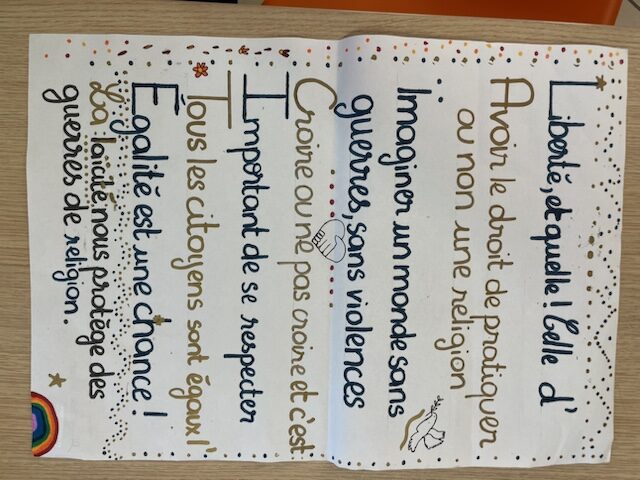 Liberté, et quelle ! Celle d'
Avoir le droit de pratiquer
ou non une religion
Imaginer un monde sans
guerres, sans violences
Croire ou ne pas croire et c'est
Important de se respecter
Tous les citoyens sont égaux !
Égalité est une chance !
La laïcité, nous protège des
guerres de religion.